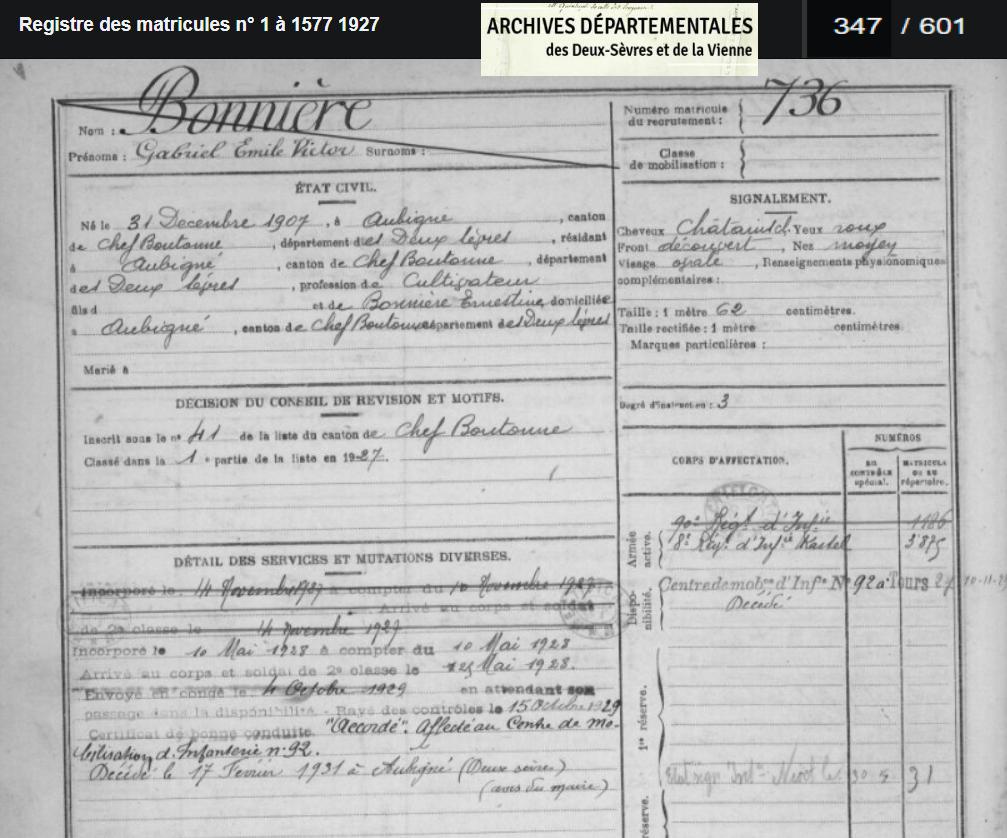 Registre des matricules n° 1 à 1577 1927
ARCHIVES DÉPARTEMENTALES
des Deux-Sèvres et de la Vienne
347 / 601
Nom : Bonnière
Prénoms : Gabriel Emile Victor Surnoms :
Numéro matricule
du recrutement : 736
Classe
de mobilisation :
ÉTAT CIVIL.
Né le 31 Decembre 1907, à Aubigné, canton
de Chef Boutonne, département des Deux Sèvres, résidant
à Aubigné, canton de Chef Boutonne, département
des Deux Sèvres, profession de Cultivateur
fils d et de Bonnière Ernestine domiciliée
à Aubigné, canton de Chef Boutonne département des Deux Sèvres
Marié à
SIGNALEMENT.
Cheveux Yeux roux
Front découvert, Nez moyen
Visage ovale, Renseignements physionomiques
complémentaires :
Taille : 1 mètre 62 centimètres.
Taille rectifiée : 1 mètre centimètres.
Marques particulières :
Degré d'instruction : 3
DÉCISION DU CONSEIL DE REVISION ET MOTIFS.
Inscrit sous le n° 41 de la liste du canton de Chef Boutonne
Classé dans la 1e partie de la liste en 1927.
CORPS D'AFFECTATION.
NUMÉROS
AU
CONTRÔLE
spécial.
MATRICULE
OU AU
répertoire.
Armée
active.
90e Régt d'Infie 1186
8e Rég. d'Infie Kastel 3875
Dispo-
nibilité.
Centre de mob. d'Infie N° 92 a Tours
Décédé
1re réserve.
31
réserve.
DÉTAIL DES SERVICES ET MUTATIONS DIVERSES.
Incorporé le 14 Novembre 1927 à compter du 10 Novembre 1927
Arrivé au corps et soldat
de 2e classe le 14 Novembre 1927
Incorporé le 10 Mai 1928 à compter du 10 Mai 1928
Arrivé au corps et soldat de 2e classe le Mai 1928.
Envoyé en congé le 4 Octobre 1929 en attendant son
passage dans la disponibilité. - Rayé des contrôles le 15 Octobre 1929
Certificat de bonne conduite. "Accordé". Affecté au Centre de Mo-
bilisation d'Infanterie n° 92.
Décédé le 17 Février 1931 à Aubigné (Deux sèvres)
(avis du maire)